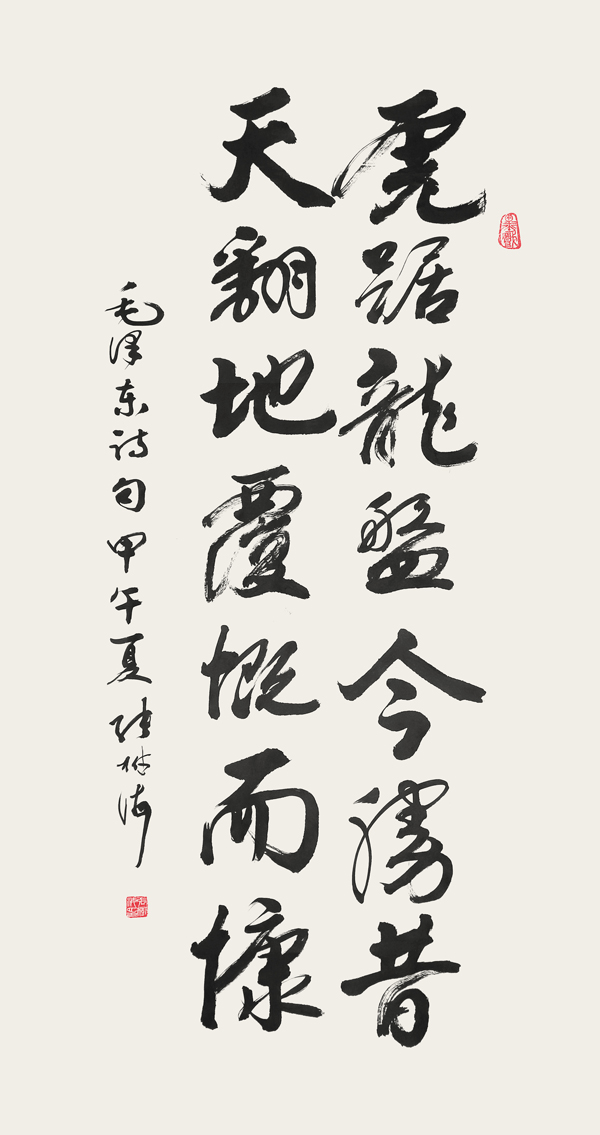 虎踞龍盤今勝昔
天翻地覆慨而慷
毛泽东诗句甲午夏